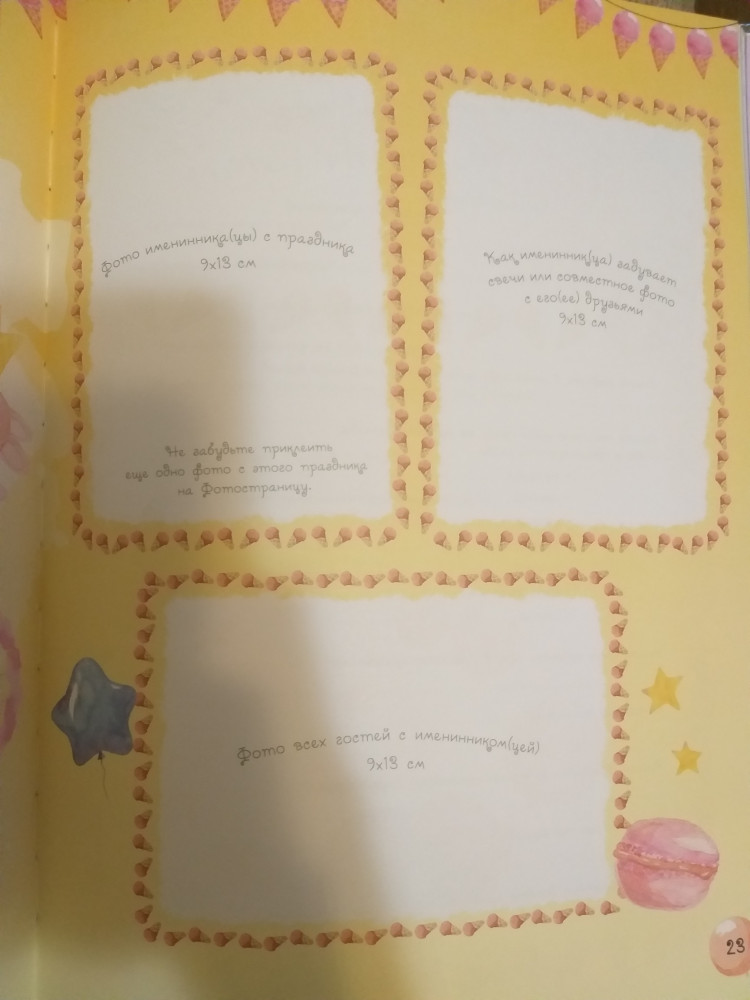 Фото именинника(цы) с праздника
9х13 см
Не забудьте приклеить
еще одно фото с этого праздника
на Фотостраницу.
Как именинник(ца) задувает
свечи или совместное фото
с его(ее) друзьями
9х13 см
Фото всех гостей с именинником(цей)
9х13 см
23